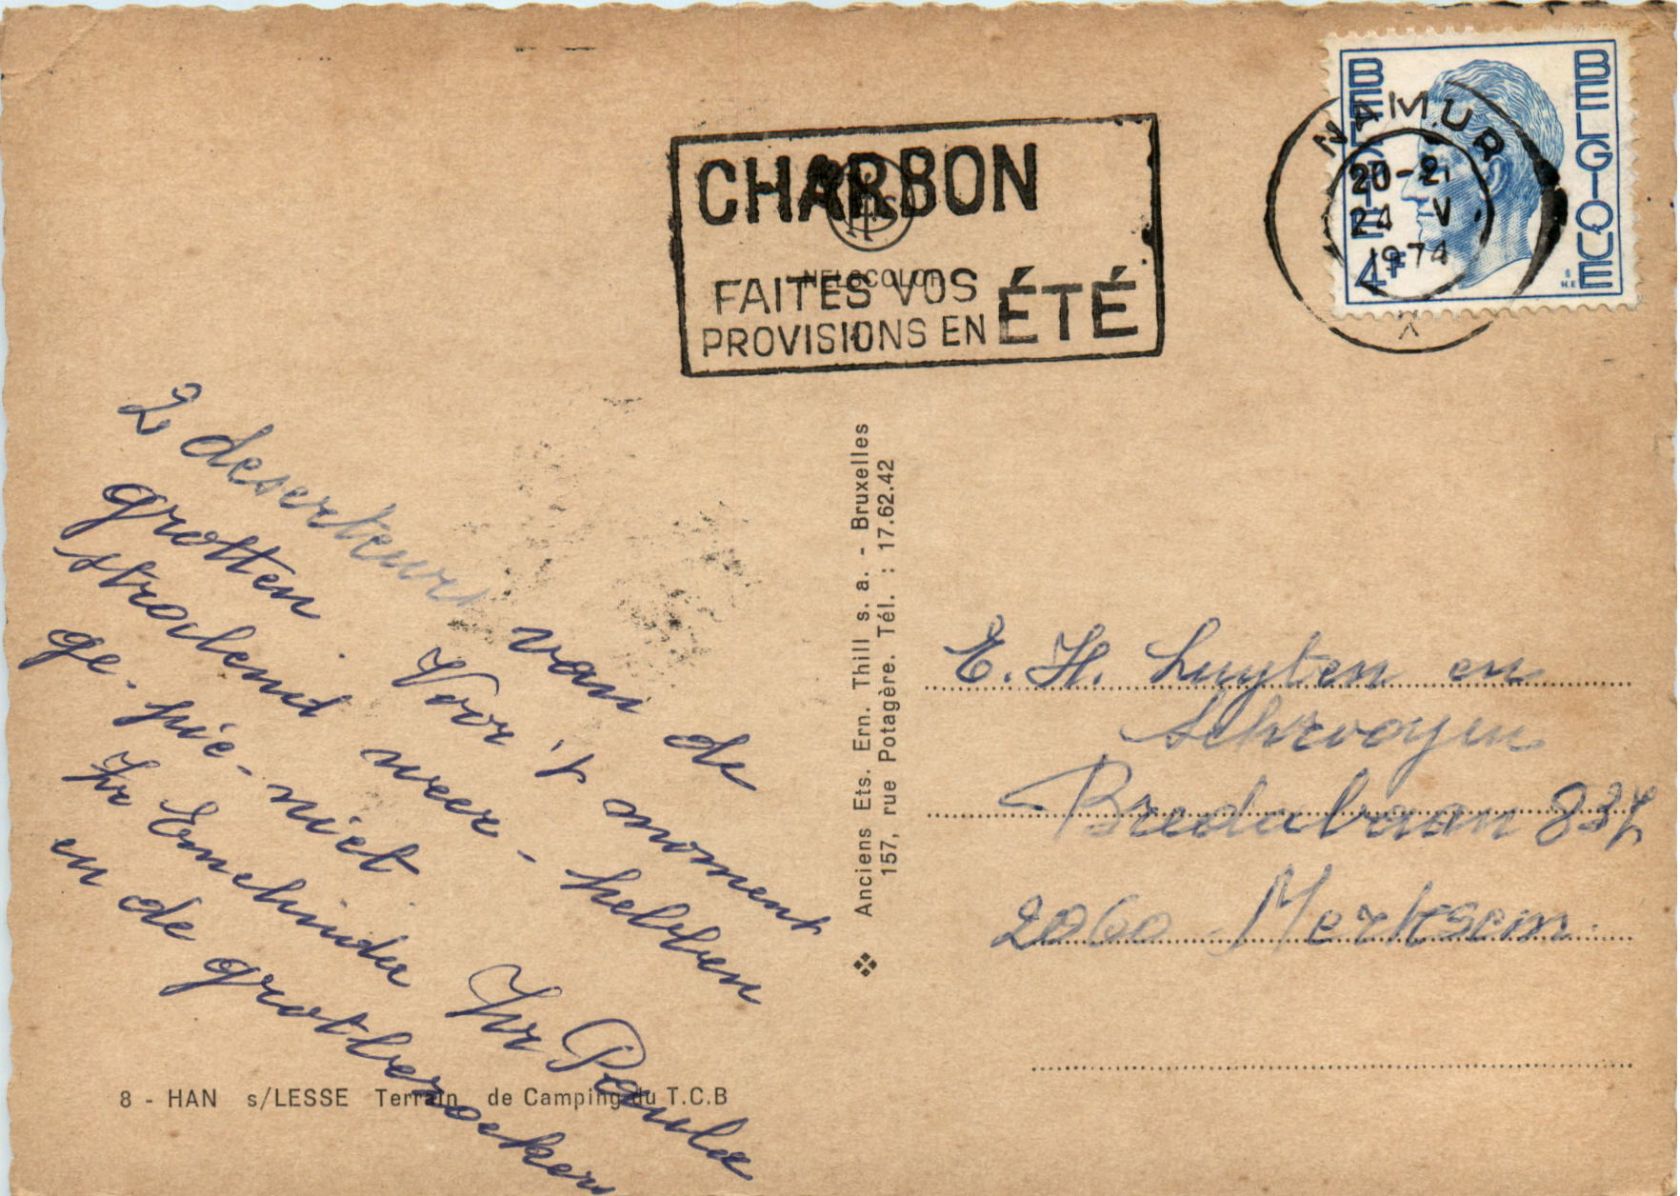 CHARBON
FAITES VOS
PROVISIONS EN ÉTÉ
NELSCOLOR
NAMUR
20-21
24 V
1974
X
BELGIE
BELGIQUE
4F
2 deserteurs van de
grotten. Voor 't moment
stralend weer - hebben
ge-pic-nict
Zr Emelinda Zr Paula
en de grotbezoekers
8 - HAN s/LESSE Terrain de Camping du T.C.B
Anciens Ets. Ern. Thill s. a. - Bruxelles
157, rue Potagère. Tél. : 17.62.42
E. H. Luyten en
Schrooyen
Bredabaan 837
2060 Merksem.